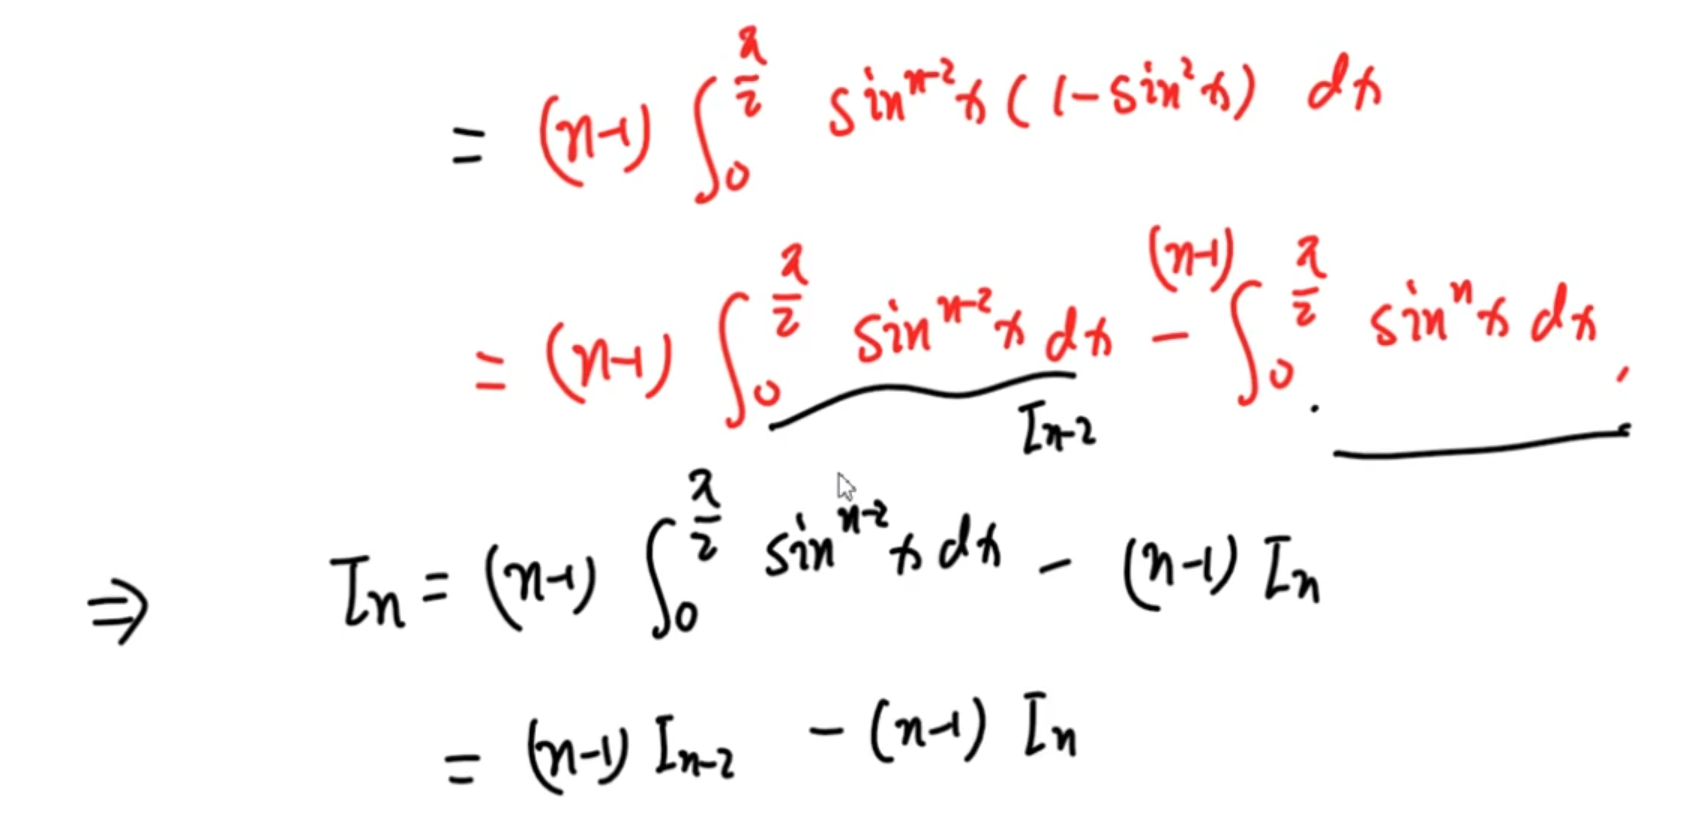 = (n-1) ∫₀^(π/2) sinⁿ⁻²x (1-sin²x) dx
= (n-1) ∫₀^(π/2) sinⁿ⁻²x dx - (n-1) ∫₀^(π/2) sinⁿx dx,
Iₙ₋₂
⇒ Iₙ = (n-1) ∫₀^(π/2) sinⁿ⁻²x dx - (n-1) Iₙ
= (n-1) Iₙ₋₂ - (n-1) Iₙ